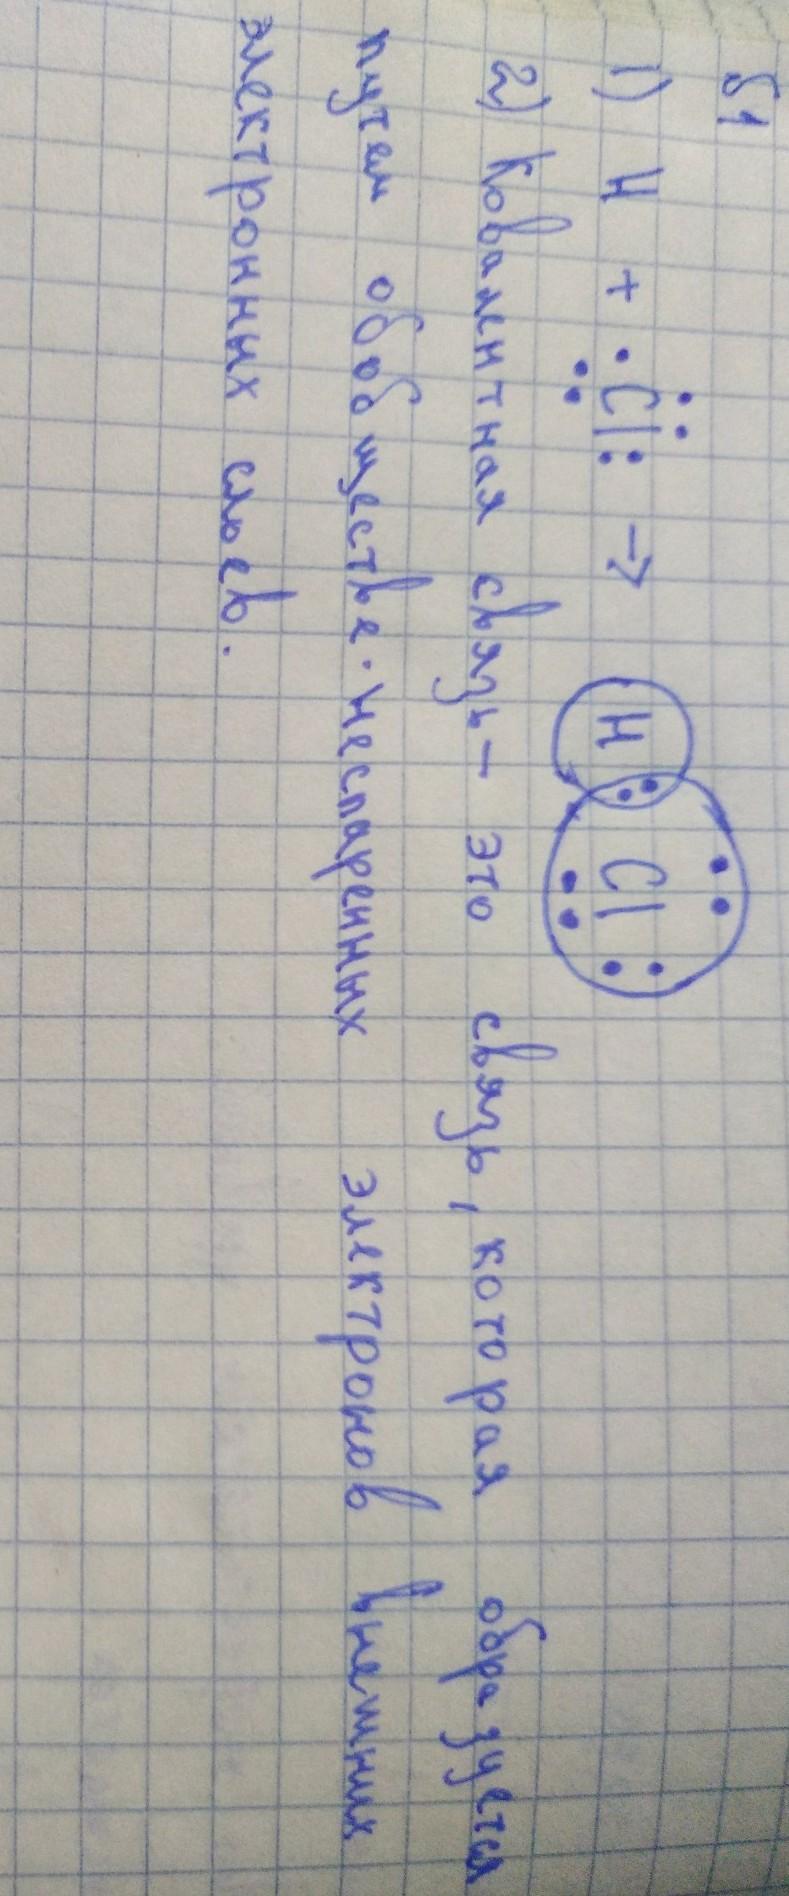 б1
1) H + ·Cl: → H : Cl
2) Ковалентная связь – это связь, которая образуется
путем обобществле. неспаренных электронов внешних
электронных слоев.